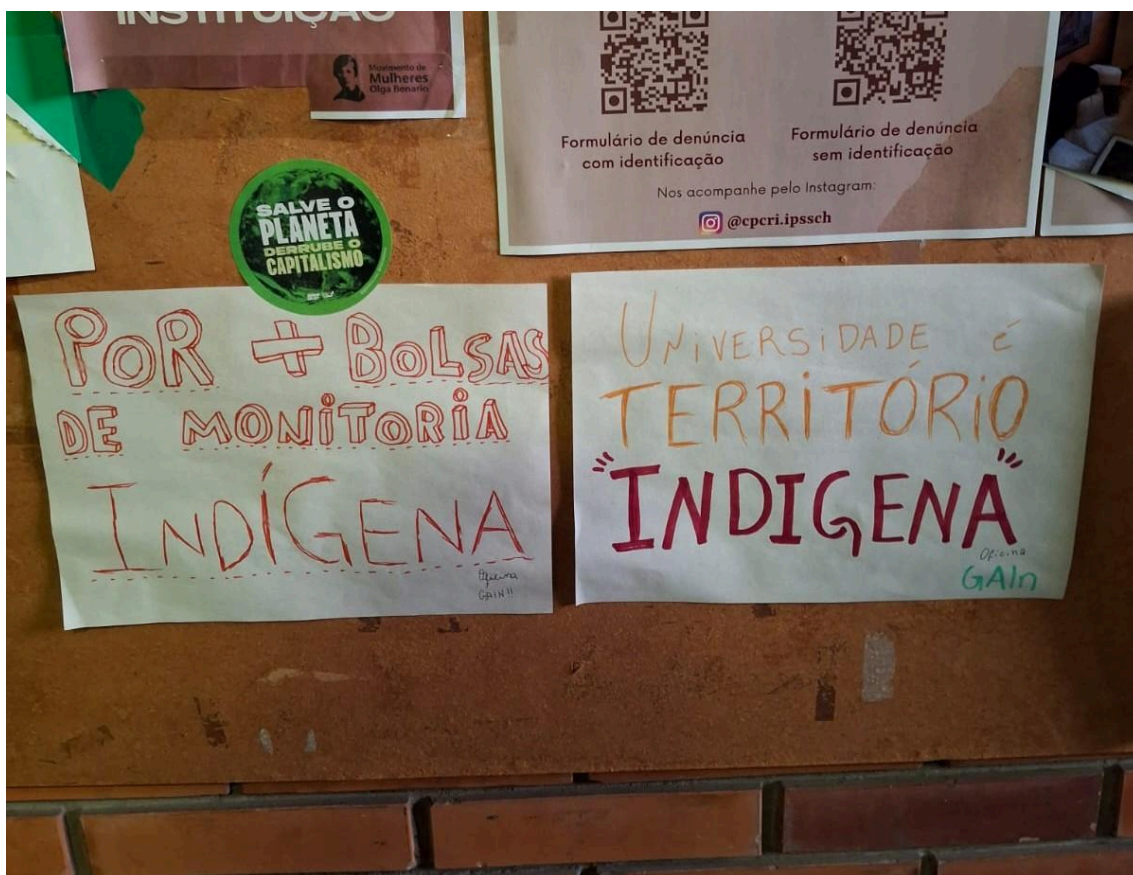 INSTITUIÇÃO
Movimento de
Mulheres
Olga Benario
Formulário de denúncia
com identificação
Formulário de denúncia
sem identificação
Nos acompanhe pelo Instagram:
@cpcri.ipssch
SALVE O
PLANETA
DERRUBE O
CAPITALISMO
POR + BOLSAS
DE MONITORIA
INDÍGENA
Oficina
GAIN!!
UNIVERSIDADE É
TERRITÓRIO
"INDIGENA"
Oficina
GAIn